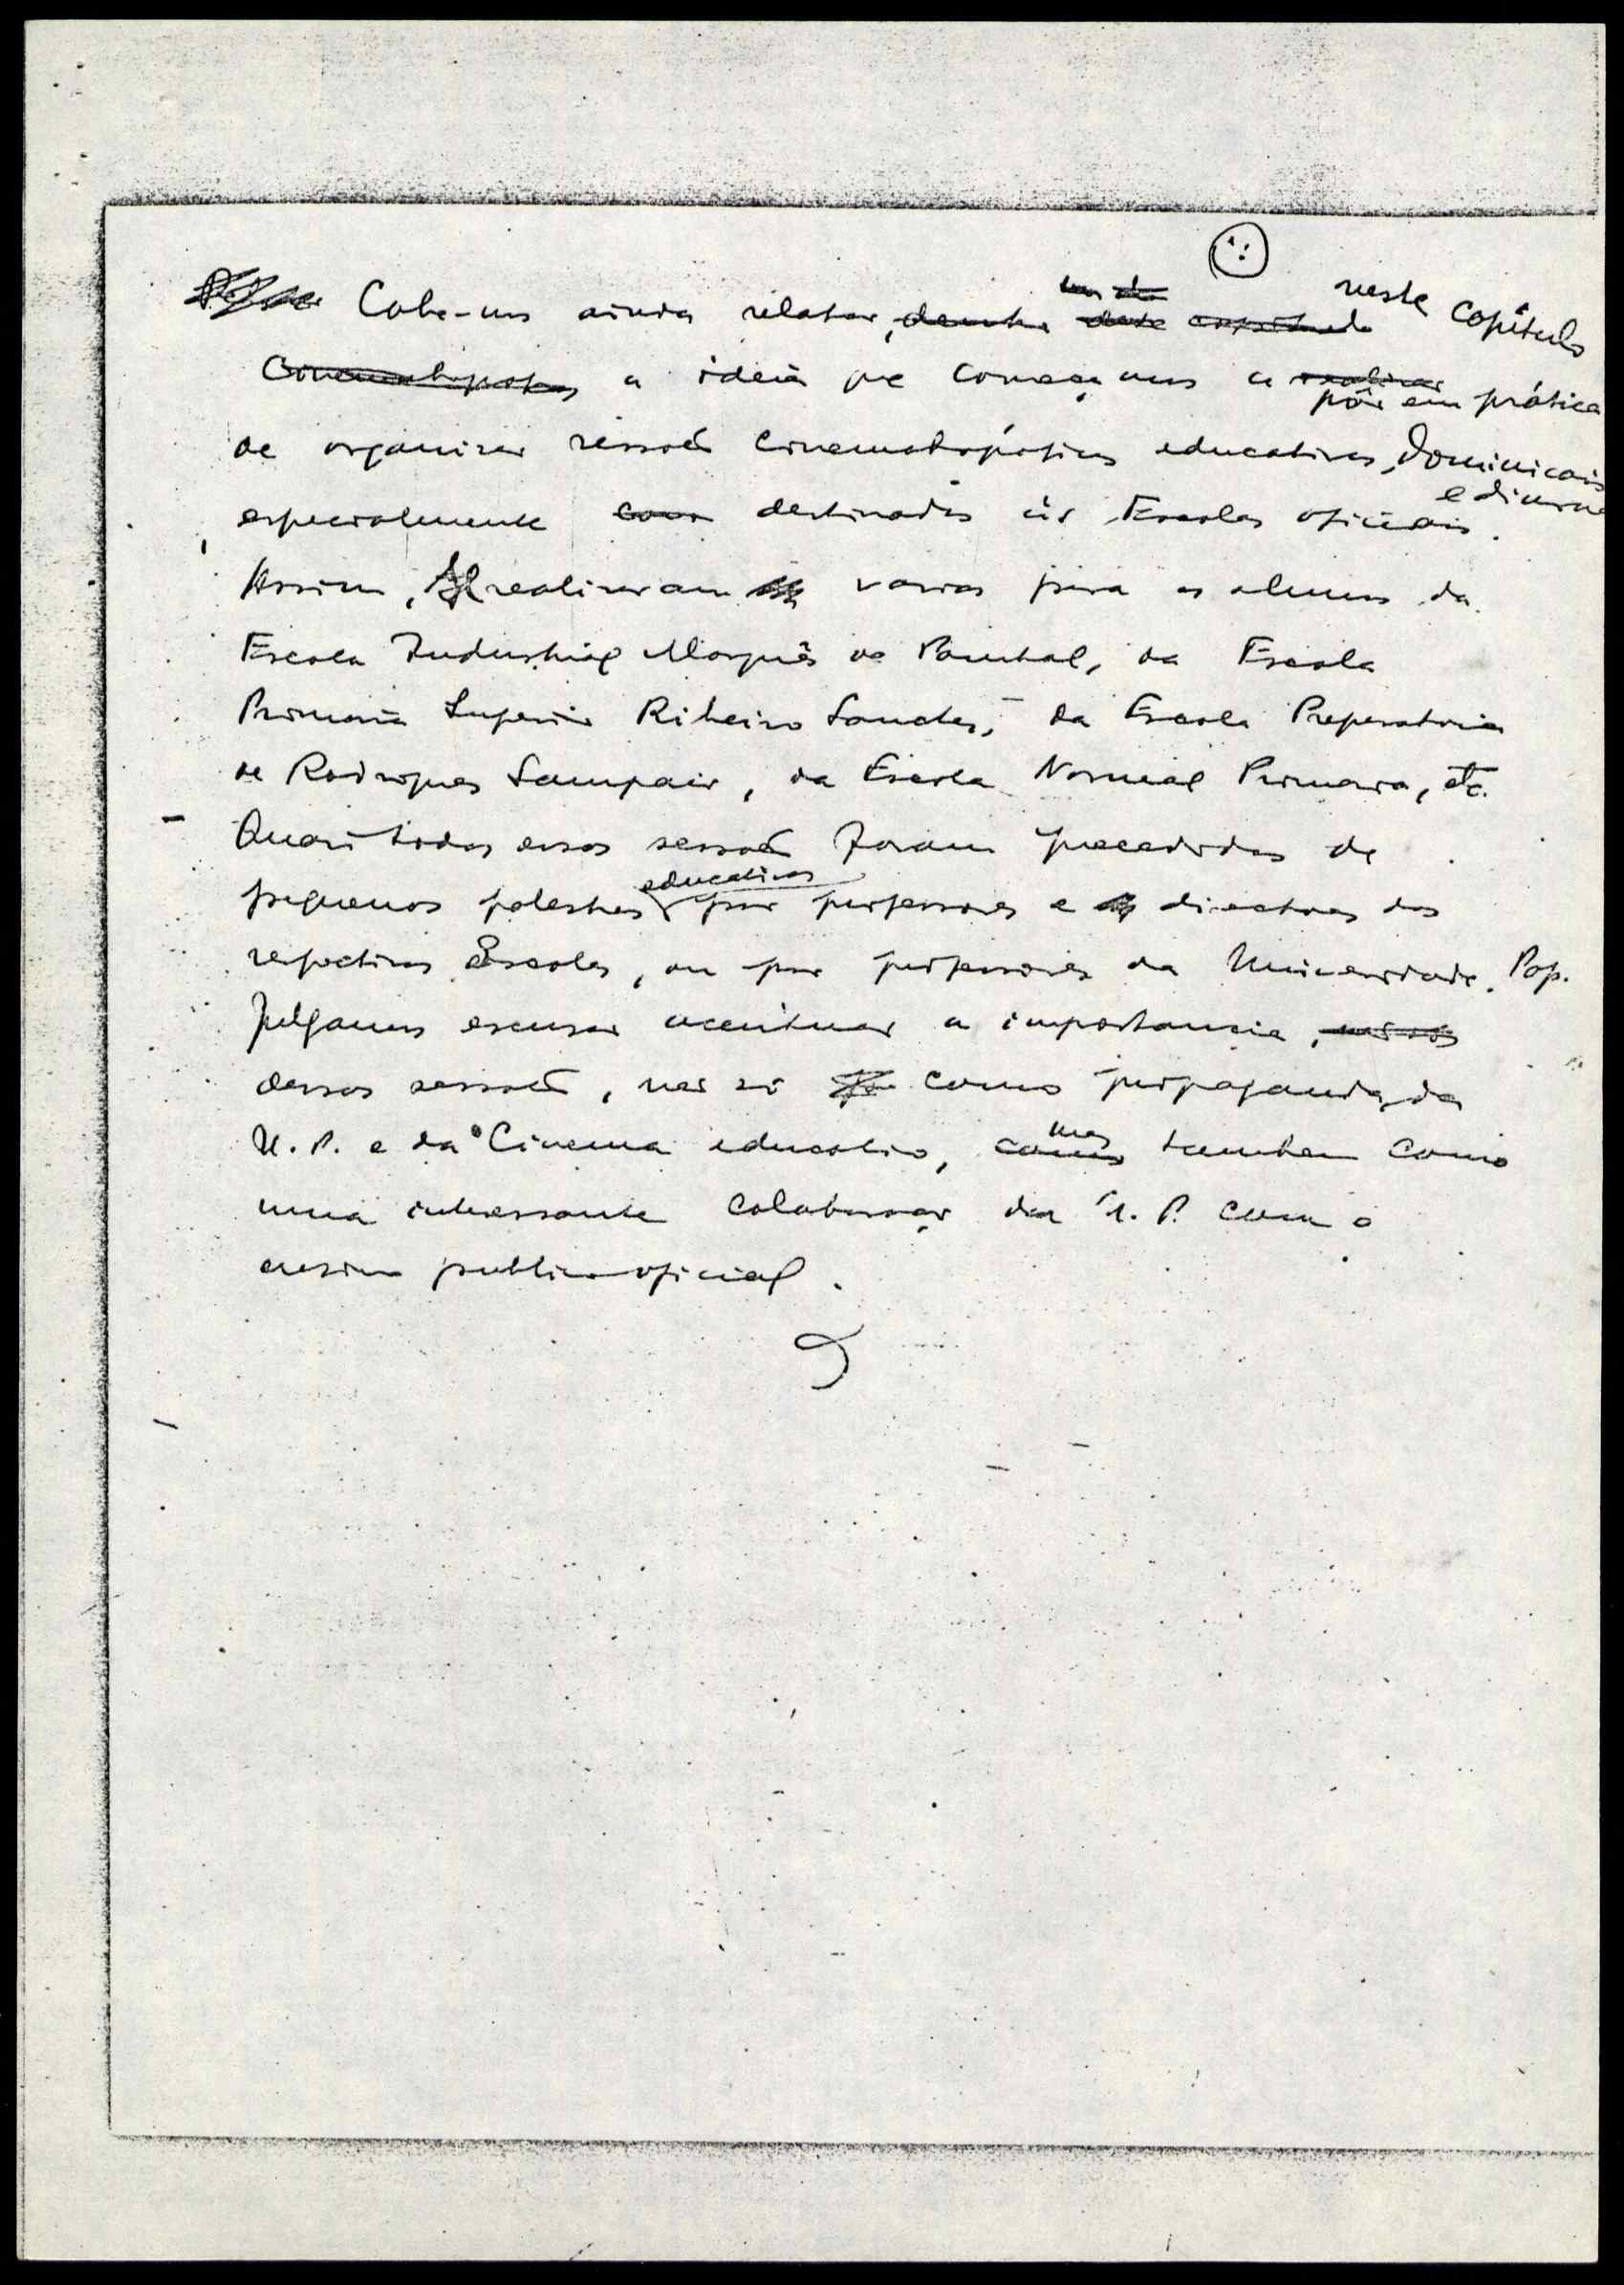 Cabe-nos ainda relatar, neste capítulo
a ideia que começamos a pôr em prática
de organisar sessões cinematográficas educativas, dominicais
e diurnas
especialmente destinadas ás Escolas oficiais.
Assim, realisaram varias para os alunos da
Escola Industrial Marquês de Pombal, da Escola
Primaria Superior Ribeiro Sanches, da Escola Preparatoria
de Rodrigues Sampaio, da Escola Normal Primaria, etc.
Quasi todas essas sessões foram precedidas de
pequenas palestras educativas por professores e directores das
respectivas Escolas, ou por professores da Universidade Pop.
Julgamos escusar acentuar a importancia,
dessas sessões, não só como propaganda da
U. P. e do Cinema educativo, mas tambem como
uma interessante colaboração da U. P. com o
ensino publico oficial.